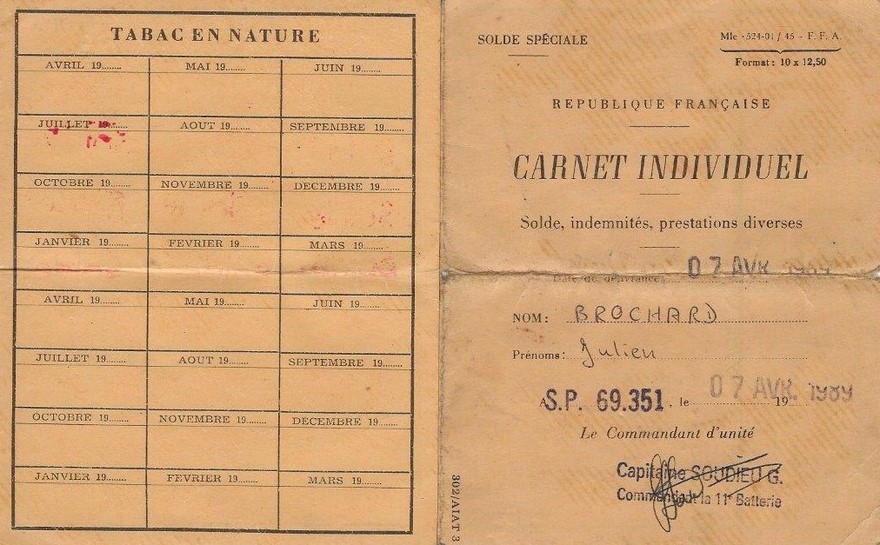 TABAC EN NATURE
AVRIL 19........ MAI 19........ JUIN 19........
JUILLET 19........ AOUT 19........ SEPTEMBRE 19........
OCTOBRE 19........ NOVEMBRE 19........ DECEMBRE 19........
JANVIER 19........ FEVRIER 19........ MARS 19........
AVRIL 19........ MAI 19........ JUIN 19........
JUILLET 19........ AOUT 19........ SEPTEMBRE 19........
OCTOBRE 19........ NOVEMBRE 19........ DECEMBRE 19........
JANVIER 19........ FEVRIER 19........ MARS 19........
SOLDE SPÉCIALE
Mle -524-01 / 45 - F. F. A.
Format : 10 x 12,50
REPUBLIQUE FRANÇAISE
CARNET INDIVIDUEL
Solde, indemnités, prestations diverses
Date de délivrance 07 AVR.
NOM : BROCHARD
Prénoms : Julien
A S.P. 69.351. le 07 AVR. 1989 19
Le Commandant d'unité
Capitaine SOUDIEU G.
Commandant la 11e Batterie
302/AIAT 3